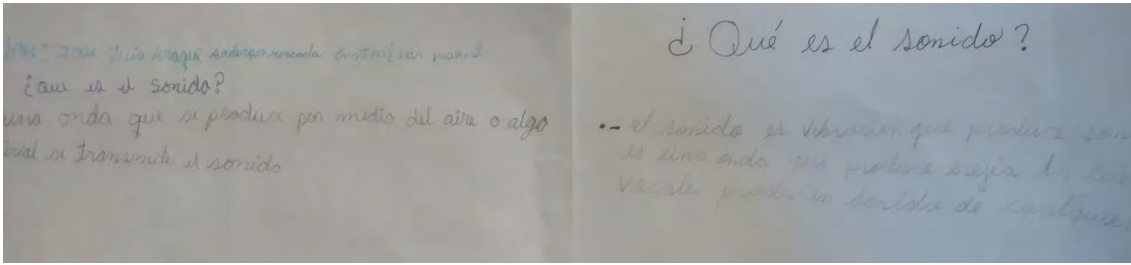 Jose Luis Anderson
¿Que es el sonido?
una onda que se produce por medio del aire o algo
se transmite el sonido
¿Qué es el sonido?
•- el sonido es vibracion que produce son
es una onda que produce
vocales producen sonido de cualquier